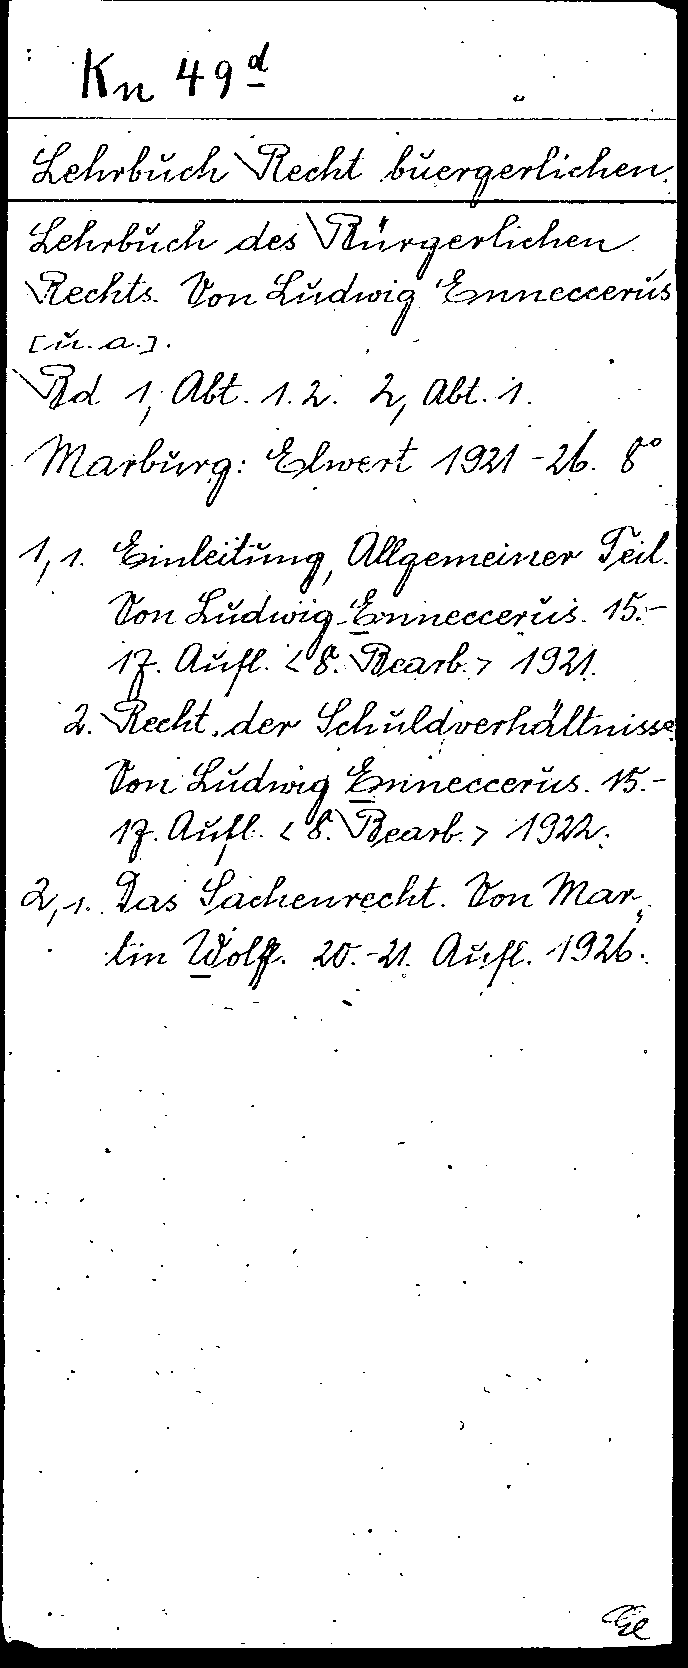 Kn 49d
Lehrbuch Recht buergerlichen
Lehrbuch des Bürgerlichen
Rechts. Von Ludwig Enneccerus
[u. a.].
Bd 1, Abt. 1. 2. 2, Abt. 1.
Marburg: Elwert 1921-26. 8°
1,1. Einleitung, Allgemeiner Teil.
Von Ludwig Enneccerus. 15.-
17. Aufl. <8. Bearb.> 1921.
2. Recht der Schuldverhältnisse
Von Ludwig Enneccerus. 15.-
17. Aufl. <8. Bearb.> 1922.
2,1. Das Sachenrecht. Von Mar-
tin Wolff. 20.-21. Aufl. 1926.